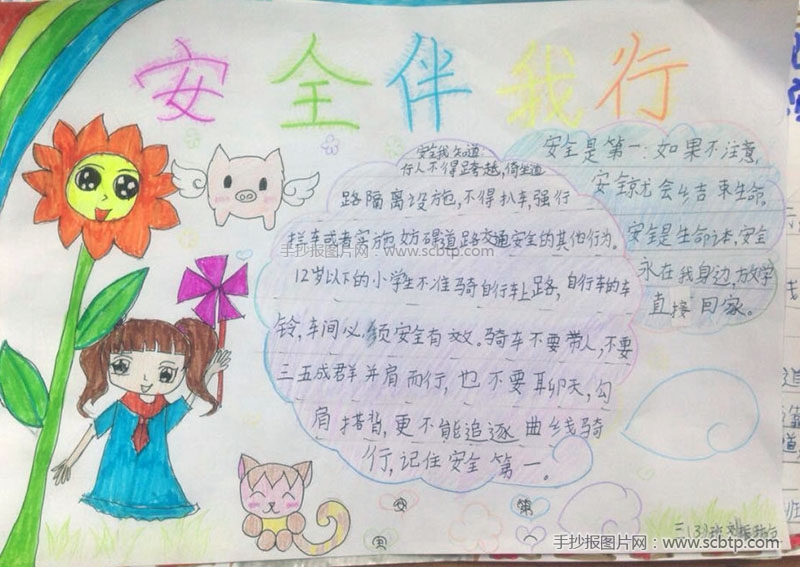 安全伴我行
安全我知道
行人不得跨越,倚坐道
路隔离设施,不得扒车,强行
拦车或者实施妨碍道路交通安全的其他行为。
手抄报图片网:www.scbtp.com
12岁以下的小学生不准骑自行车上路,自行车的车
铃,车闸必须安全有效。骑车不要带人,不要
三五成群并肩而行,也不要聊天,勾
肩搭背,更不能追逐曲线骑
行,记住安全第一。
安全是第一:如果不注意,
安全就会结束生命,
安全是生命之本,安全
永在我身边,放学
直接回家。
安
第
一
三(3)班
手抄报图片网:www.scbtp.com